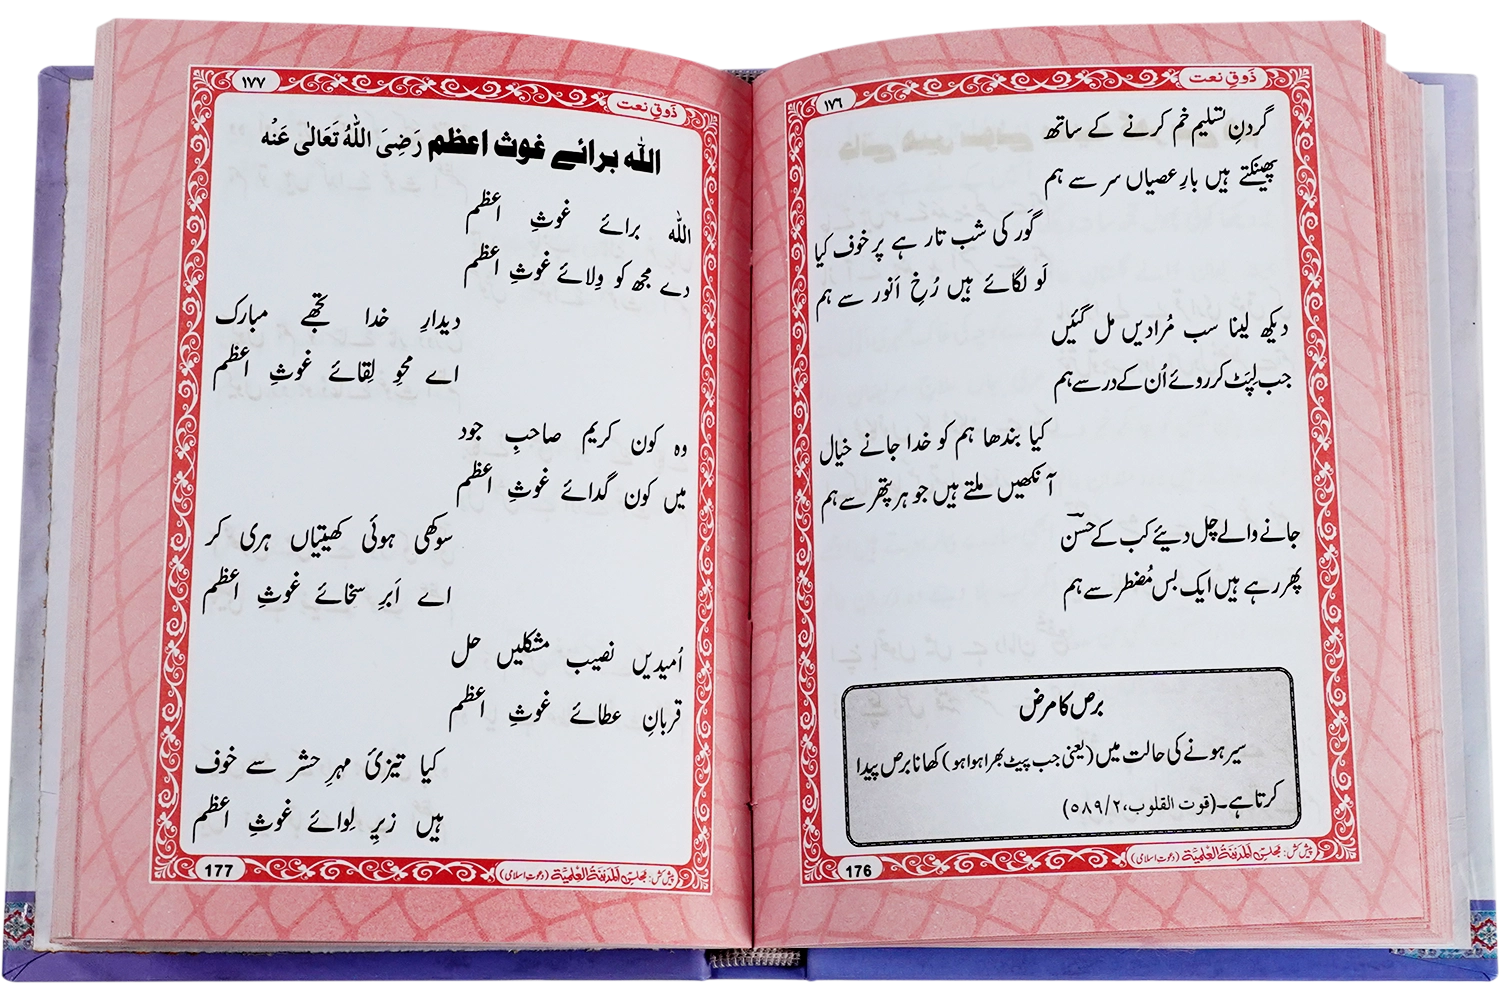 ذَوقِ نعت
١٧٦
گردنِ تسلیم خم کرنے کے ساتھ
پھینکتے ہیں بارِ عصیاں سر سے ہم
گَور کی شب تار ہے پر خوف کیا
لَو لگائے ہیں رُخِ اَنور سے ہم
دیکھ لینا سب مُرادیں مل گئیں
جب لِپَٹ کر روئے اُن کے در سے ہم
کیا بندھا ہم کو خدا جانے خیال
آنکھیں ملتے ہیں جو ہر پتھر سے ہم
جانے والے چل دیئے کب کے حسنؔ
پھر رہے ہیں ایک بس مُضطر سے ہم
برص کا مرض
سیر ہونے کی حالت میں (یعنی جب پیٹ بھرا ہوا ہو) کھانا برص پیدا
کرتا ہے۔ (قوت القلوب، ٢/٥٨٩)
پیش کش: مجلس اَلمَدِیْنَۃُ الْعِلْمِیَّۃ (دعوت اسلامی)
176
ذَوقِ نعت
١٧٧
اللہ برائے غوث اعظم رَضِیَ اللّٰہُ تَعَالٰی عَنْہ
اللہ برائے غوثِ اعظم
دے مجھ کو وِلائے غوثِ اعظم
دیدارِ خدا تجھے مبارک
اے محوِ لِقائے غوثِ اعظم
وہ کون کریم صاحبِ جود
میں کون گدائے غوثِ اعظم
سوکھی ہوئی کھیتیاں ہری کر
اے اَبرِ سخائے غوثِ اعظم
اُمیدیں نصیب مشکلیں حل
قربانِ عطائے غوثِ اعظم
کیا تیزیٔ مہرِ حشر سے خوف
ہیں زیرِ لِوائے غوثِ اعظم
پیش کش: مجلس اَلمَدِیْنَۃُ الْعِلْمِیَّۃ (دعوت اسلامی)
177